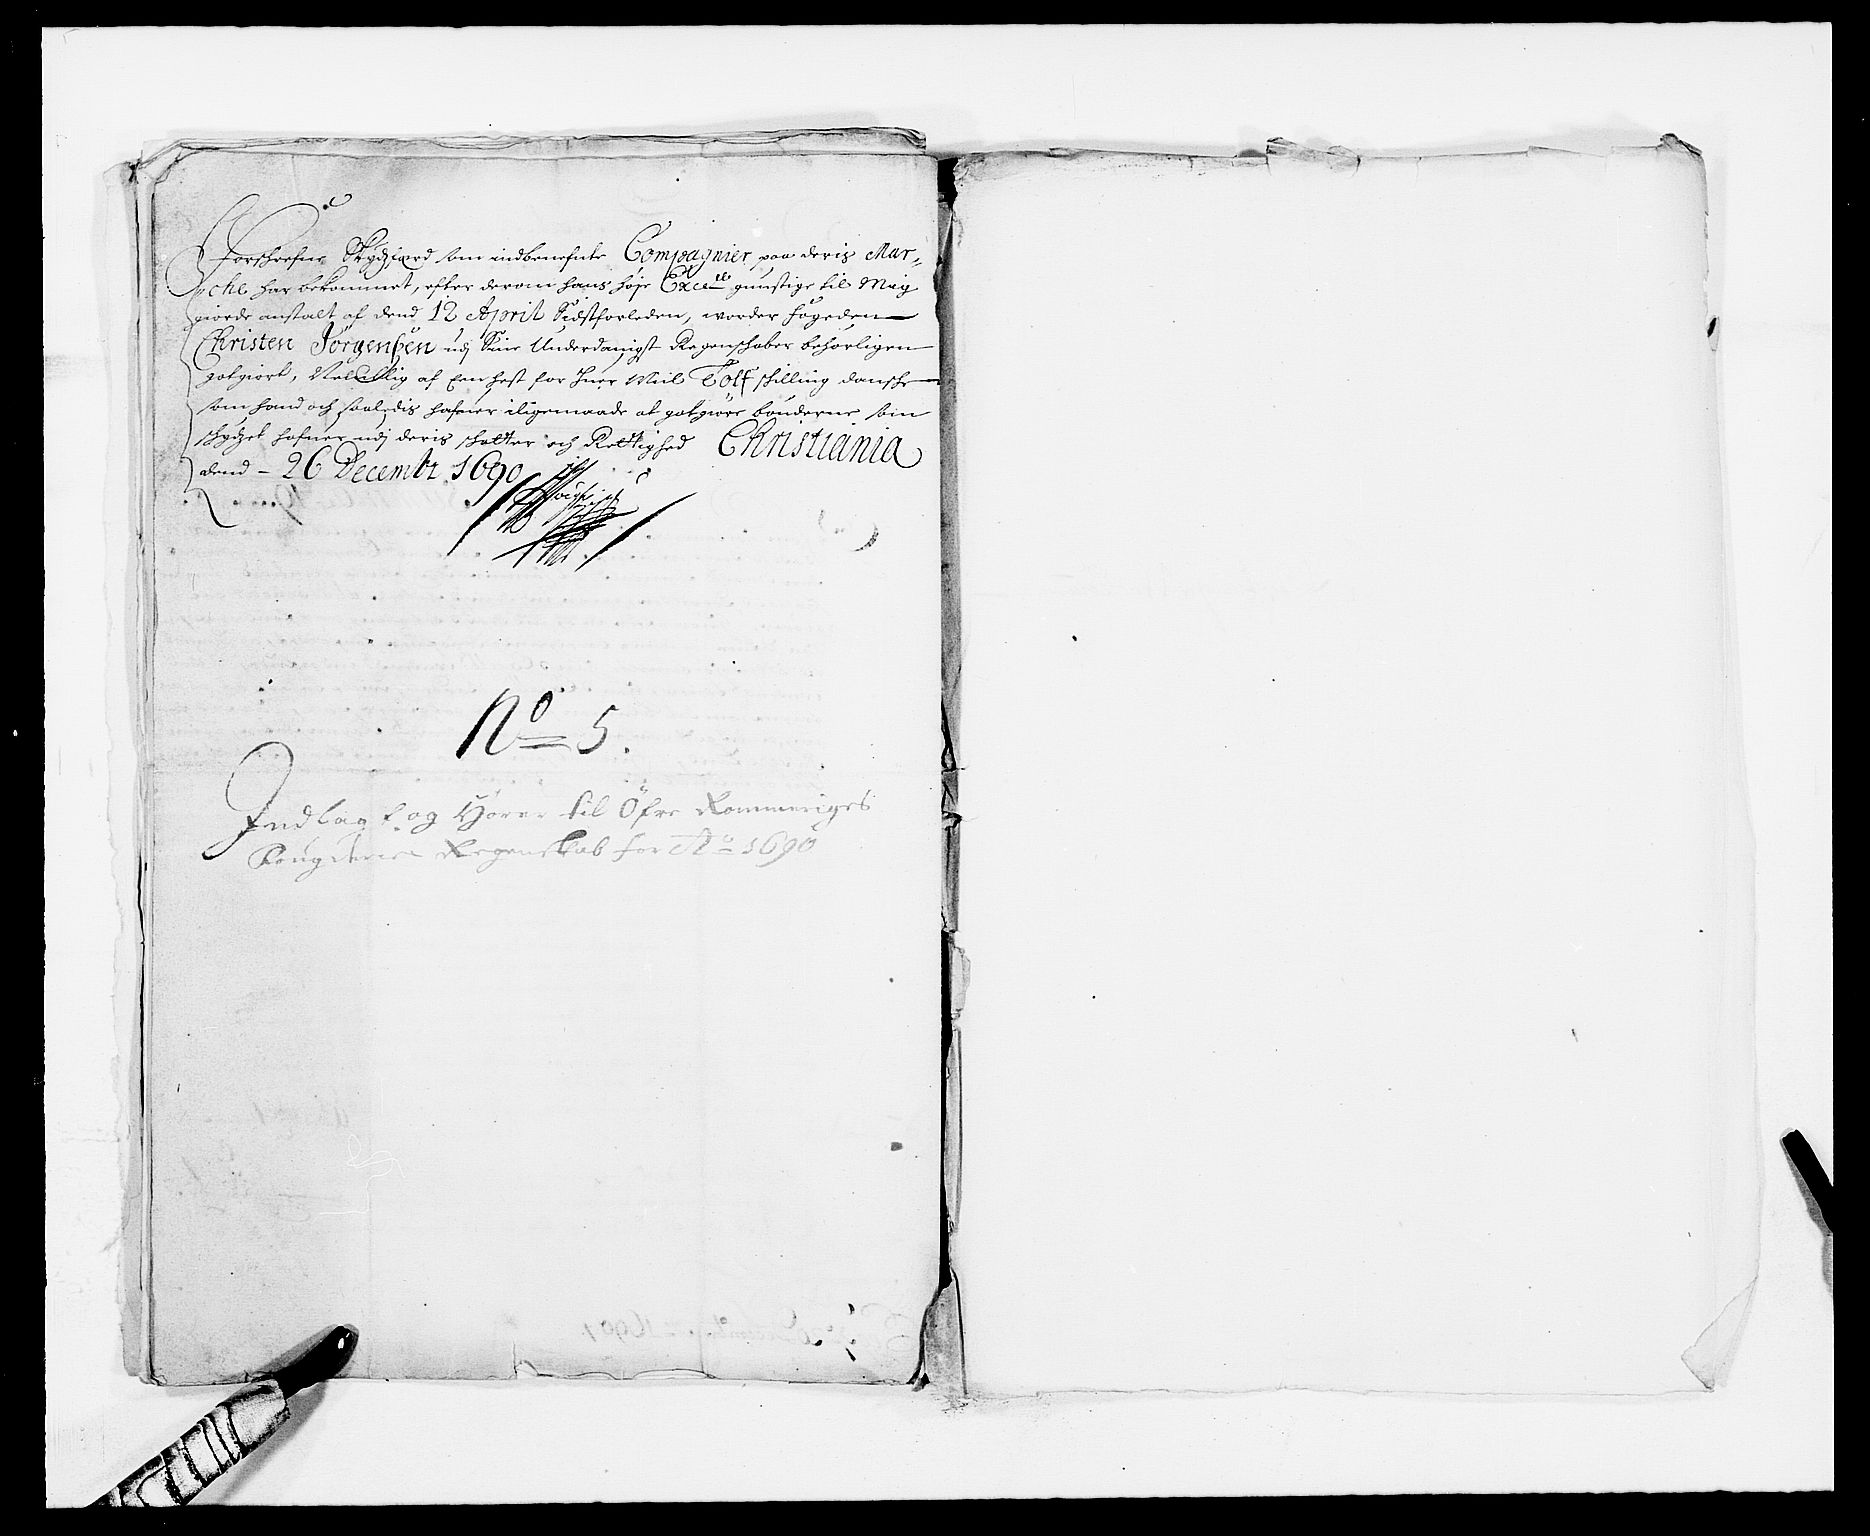 Forschrefne Skydsferd som indbenefnte Compagnier paa deris Mar-
che har bekommet, efter derom hans høje Excell gunstige til Mig
giorde anstalt af dend 12 April Sidstforleden, worder fogeden
Christen Jörgensen udj Sine Underdanigst Regenschaber behørligen
gotgiort, Nemblig af Een hest for hver Miil Tolf skilling danske
som hand och saaledis hafuer iligemaade at gotgiøre bønderne som
skydset hafuer udj deris skatter och Rettighed Christiania
dend 26 Decembr 1690
No 5.
Indlagt og Hører til Öfre Rommeriges
Fougderies Regenskab for Ao 1690